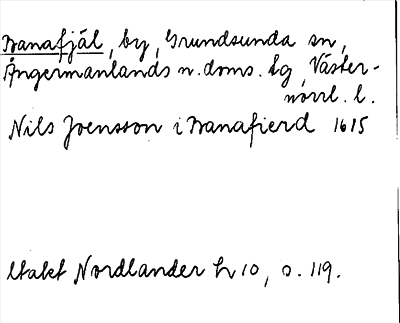 Banafjäl, by, Grundsunda sn,
Ångermanlands n. doms. tg, Väster-
norrl. l.
Nils Joensson i Banafierd 1615
Utakt Nordlander h 10, s. 119.